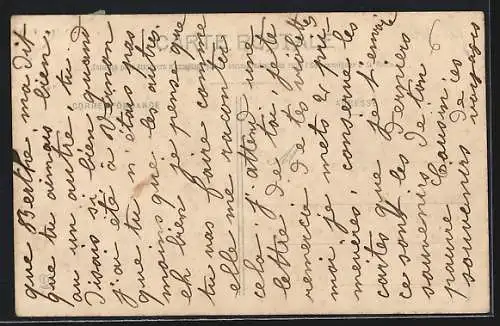 CARTE POSTALE
CORRESPONDANCE
ADRESSE
que Berthe m'a dit
que tu aimais bien
un autre, tu
disais si bien quand
j'ai été à Vernon
que tu n'étais pas
moins que les autres.
eh bien je pense que
tu vas faire comme
elle me raconter
cela j'attend une
lettre de toi, je te
remercie de tes violettes
moi je mets 2
conserve les
cartes que je t'envoie
ce sont les derniers
souvenirs de ton
pauvre Cousin
souvenirs de voyages